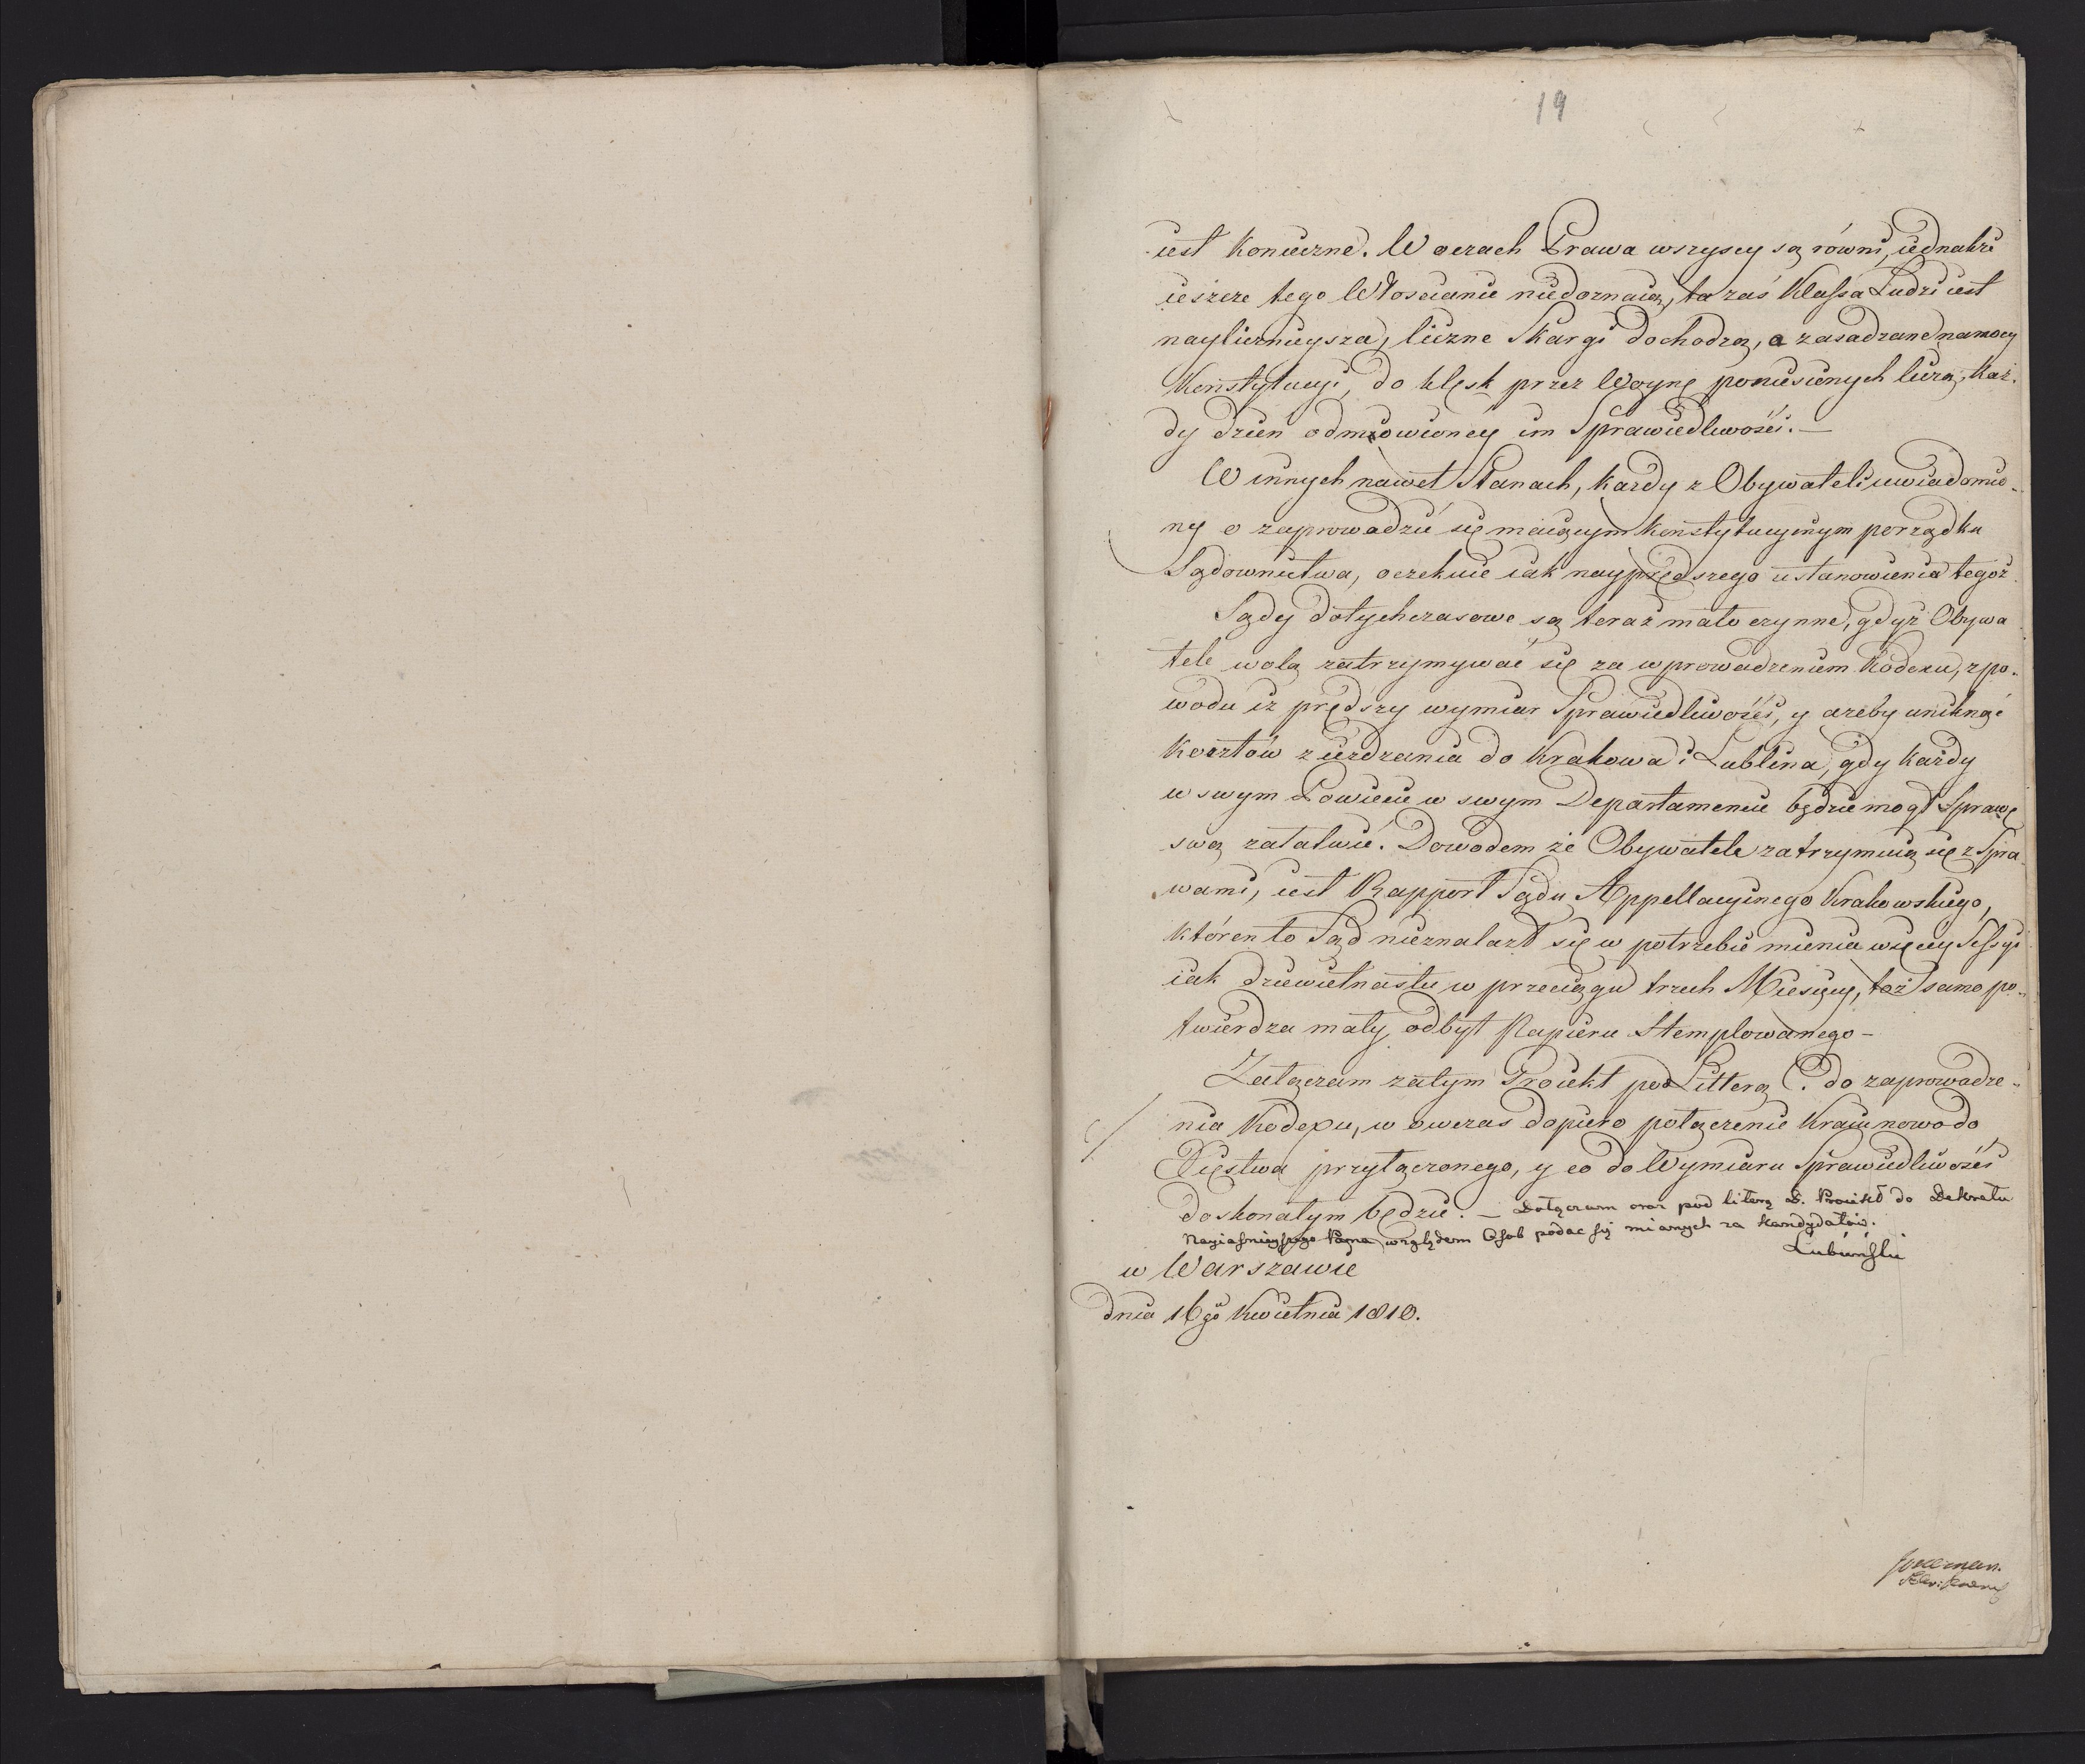 19
iest konieczne. W oczach Prawa wszyscy są równi, iednakże
ieszcze tego Włoscianie niedoznaią, ta zaś Klassa Ludzi iest
naylicznieysza, liczne Skargi dochodzą, a zasadzane na mocy
Konstytucyi, do klęsk przez Woynę poniesionych liczą, каż-
dy dzien odmowioney im Sprawiedliwości. —
W innych nawet Stanach, każdy z Obywateli uwiadomio-
ny o zaprowadzić się maiącym Konstytucyinym porządku
Sądownictwa, oczekuie iak nayprędszego ustanowienia tegoż.
Sądy dotychczasowe są teraz mało czynne, gdyż Obywa
tele wolą zatrzymywać się za wprowadzeniem Kodexu, z po-
wodu iż prędszy wymiar Sprawiedliwości, y ażeby uniknąć
Kosztów ziezdzania do Krakowa i Lublina, gdy każdy
w swym Powiecie w swym Departamencie będzie mogł Sprawę
swą załatwić. Dowodem że Obywatele zatrzymuią się z Spra-
wami, iest Rapport Sądu Appellacyinego Krakowskiego,
któren to Sąd nieznalazł się w potrzebie mienia więcey Sessyi
iak dziewietnastu w przeciągu trzech Miesięcy, toż samo po-
twierdza mały odbyt Papieru Stemplowanego —
Załączam zatym Proiekt pod Litterą C. do zaprowadze-
C/ nia Kodexu, w owczas dopiero połączenie Kraiu nowo do
Xięstwa przyłączonego, y co do Wymiaru Sprawiedliwości
doskonałym będzie. — Dołączam oraz pod literą D. Proiekt do Dekretu
Nayiasnieyszego Pana względem Osob podac się mianych za Kandydatów.
Łubieński
w Warszawie
dnia 16go Kwietnia 1810.